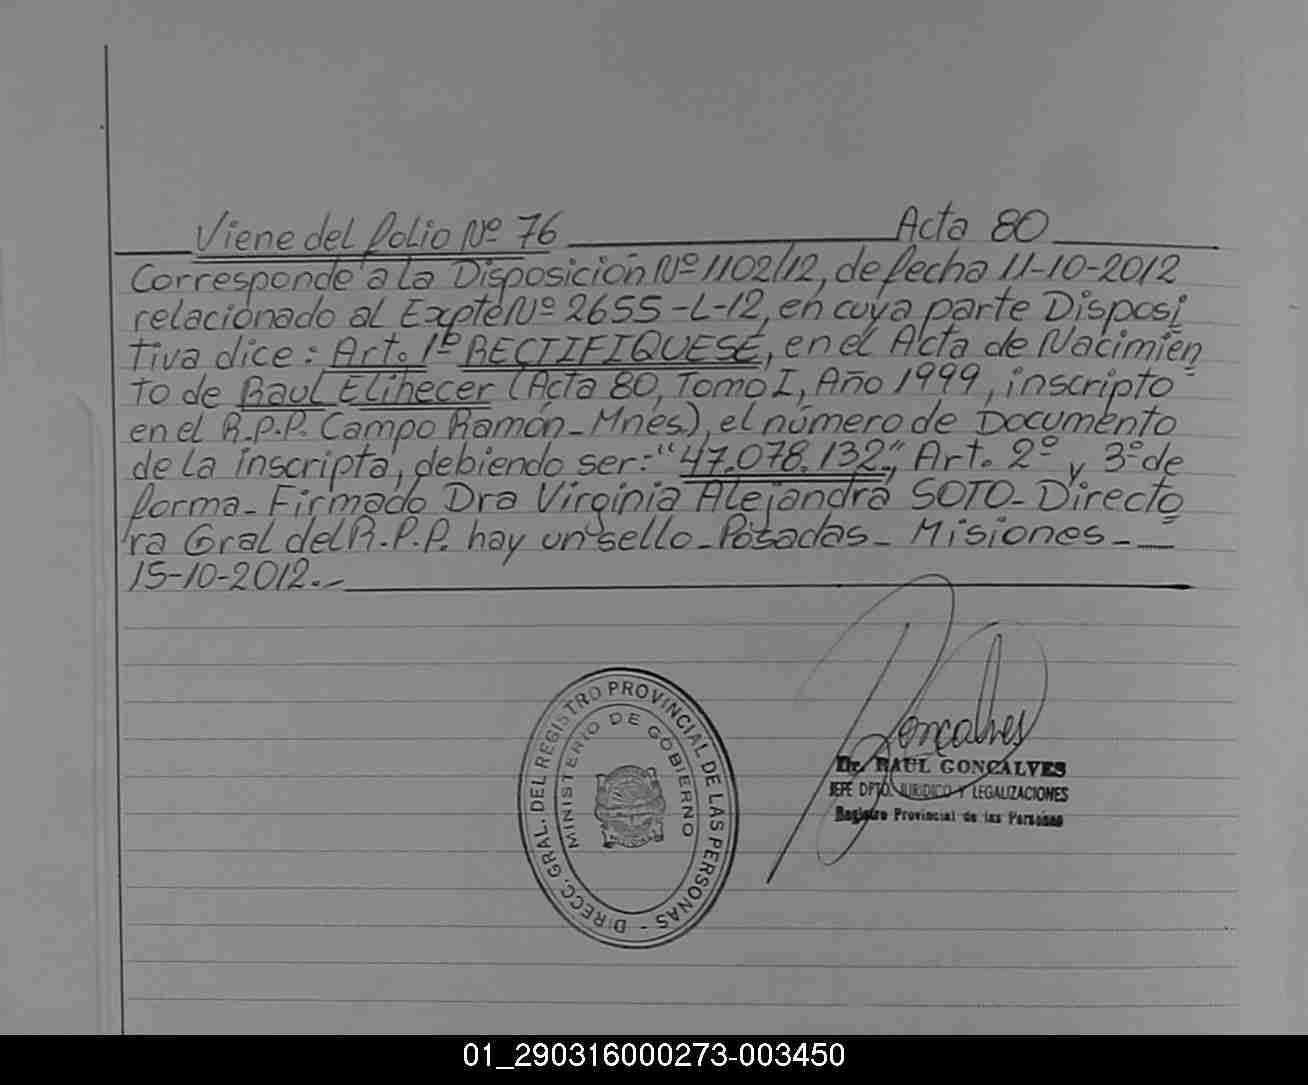 Viene del folio Nº 76 Acta 80
Corresponde a la Disposición Nº 1102/12, de fecha 11-10-2012
relacionado al Expte Nº 2655-L-12, en cuya parte Disposi
tiva dice: Art. 1º RECTIFIQUESE, en el Acta de Nacimien
to de Raul Elihecer (Acta 80, Tomo I, Año 1999, inscripto
en el R.P.P. Campo Ramón - Mnes.), el número de Documento
de la inscripta, debiendo ser: "47.078.132", Art. 2º y 3º de
forma - Firmado Dra Virginia Alejandra SOTO - Directo
ra Gral del R.P.P. hay un sello - Posadas - Misiones -
15-10-2012.-
DIRECC. GRAL. DEL REGISTRO PROVINCIAL DE LAS PERSONAS -
MINISTERIO DE GOBIERNO
Goncalves
Dr. RAUL GONCALVES
JEFE DPTO. JURIDICO Y LEGALIZACIONES
Registro Provincial de las Personas
01_290316000273-003450